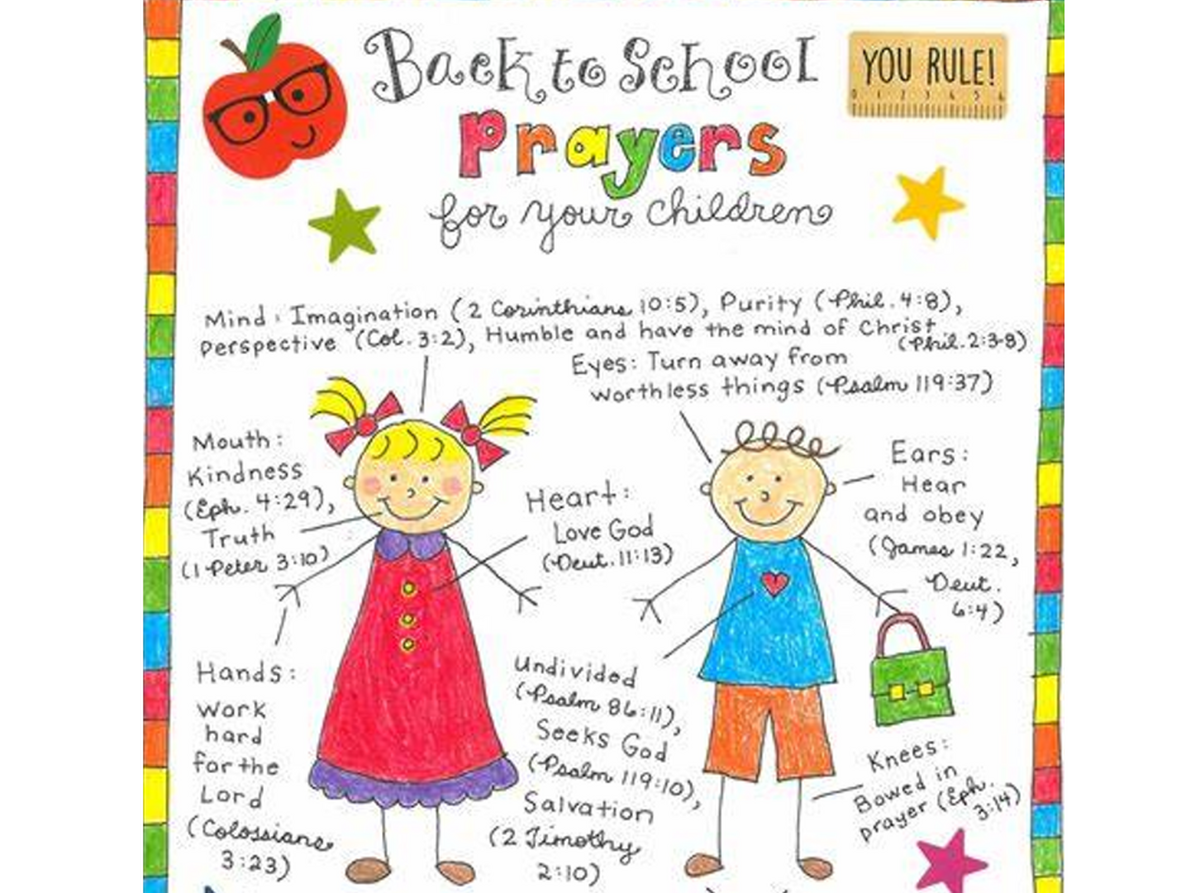 Back to School
YOU RULE!
0 1 2 3 4 5 6
Prayers
for your children
Mind: Imagination (2 Corinthians 10:5), Purity (Phil. 4:8),
Perspective (Col. 3:2), Humble and have the mind of Christ
(Phil. 2:3-8)
Eyes: Turn away from
worthless things (Psalm 119:37)
Mouth:
Kindness
(Eph. 4:29),
Truth
(1 Peter 3:10)
Heart:
Love God
(Deut. 11:13)
Ears:
Hear
and obey
(James 1:22,
Deut.
6:4)
Hands:
work
hard
for the
Lord
(Colossians
3:23)
Undivided
(Psalm 86:11),
Seeks God
(Psalm 119:10),
Salvation
(2 Timothy
2:10)
Knees:
Bowed in
prayer (Eph.
3:14)